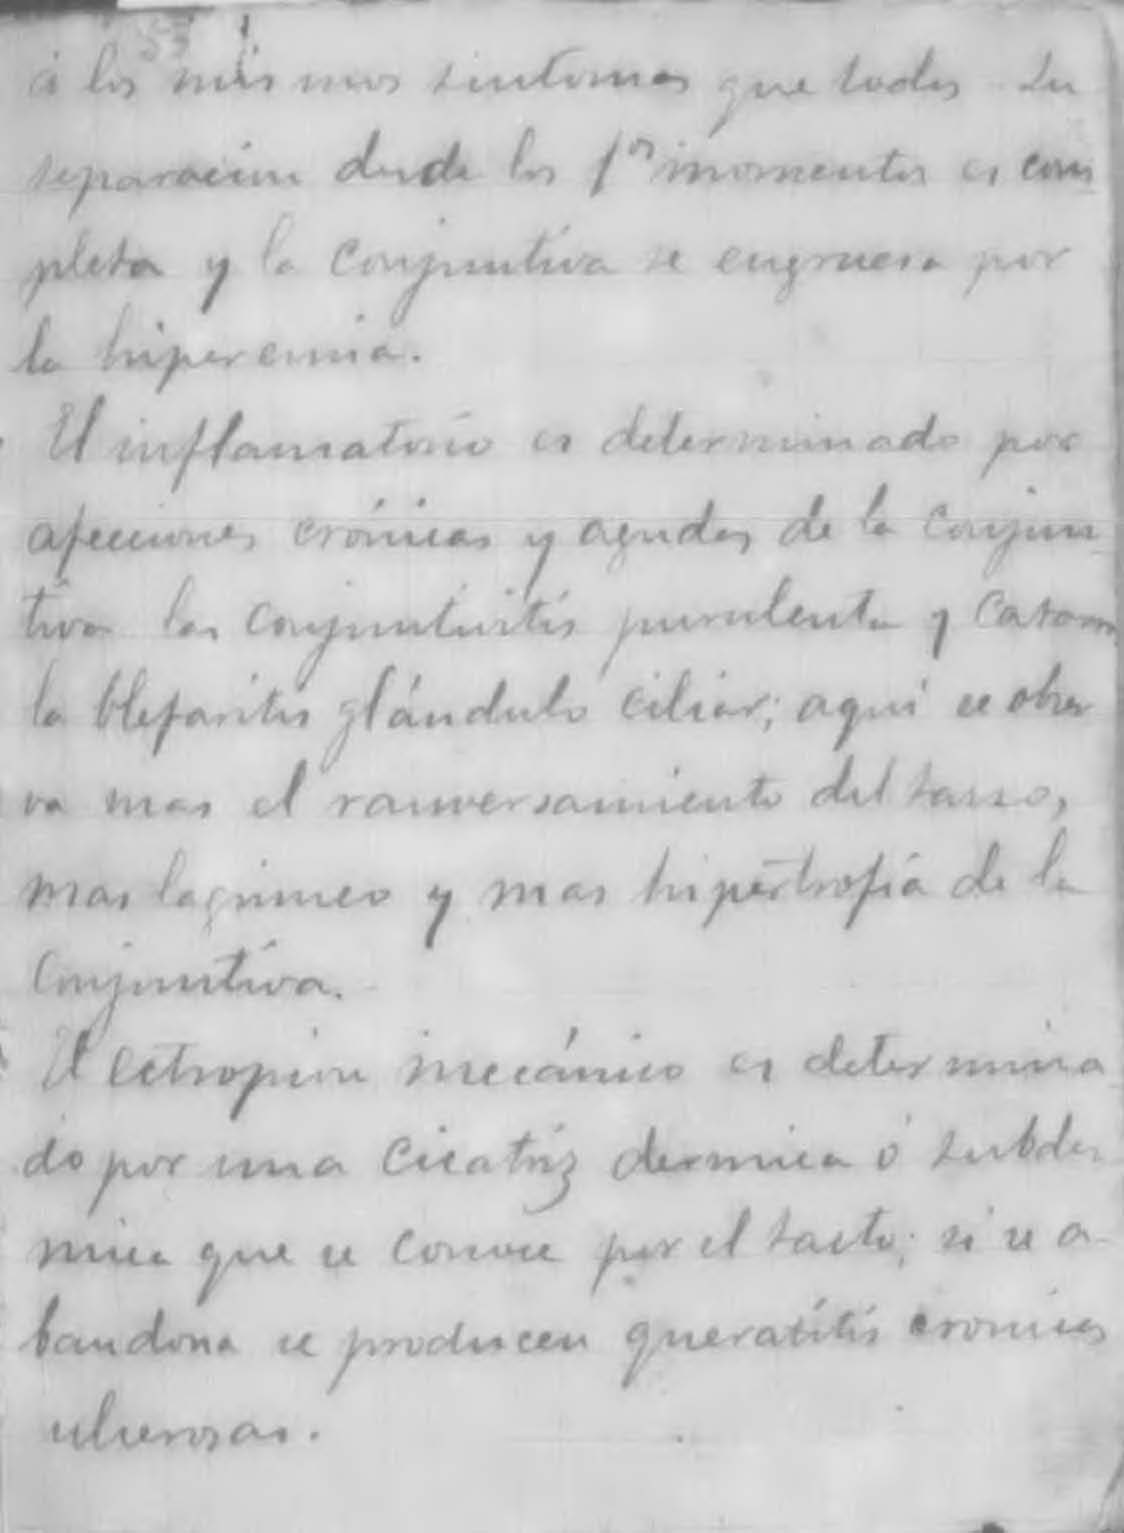 53
á los mismos sintomas que todos. Su
separacion desde los 1os momentos es com
pleta y la conjuntiva se engruesa por
la hiperemia.
El inflamatorio es determinado por
afecciones crónicas y agudas de la conjun
tiva las conjuntivitis purulenta y catarra
la blefaritis glándulo ciliar; aquí se obser
va mas el ranversamiento del tarso,
mas lagrimeo y mas hipertrofía de la
conjuntiva.
El ectropion mecánico es determina
do por una cicatriz dermica ó subder
mica que se conoce por el tacto; si se a
bandona se producen queratitis cronicas
ulcerosas.